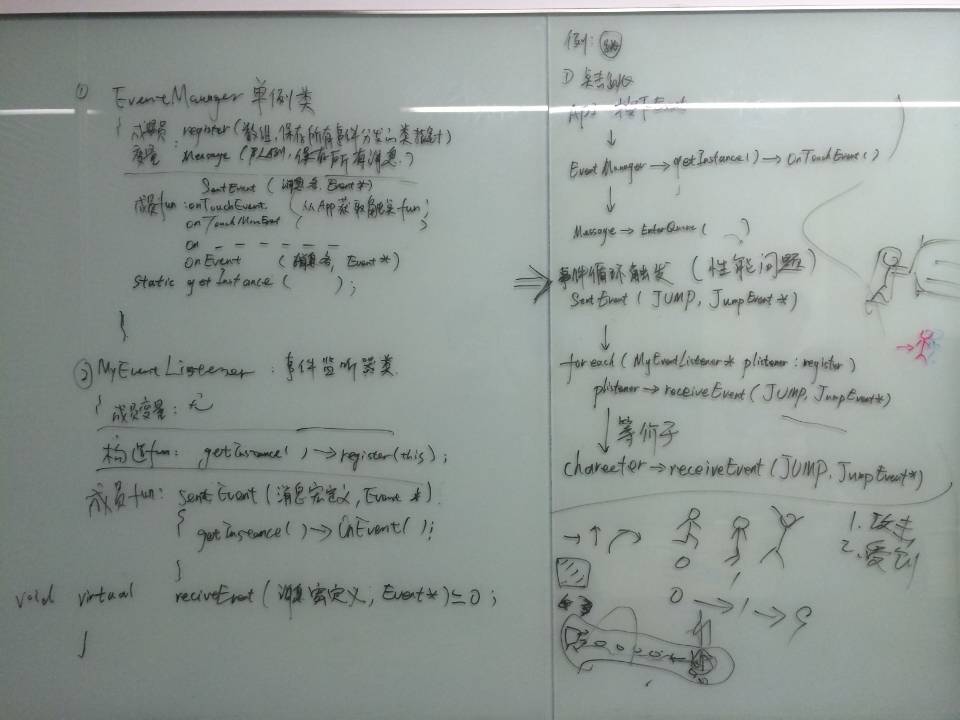 ① EventManager 单例类
{ 成员 : register (数组,保存所有事件分发的类指针)
变量 Message (队列,保存所有消息)
SentEvent (消息名, Event*)
成员fun: onTouchEvent (从App获取触类fun;
onTouchMoveEvent ( )
on _ _ _ _ _ _
onEvent (消息名, Event*)
static getInstance ( );
}
② MyEventListener : 事件监听器类
{ 成员变量: 无
构造fun: getInsrance( )→register(this);
成员fun: sentEvent (消息宏定义, Event *)
{ getInstance( )→OnEvent( );
}
void virtual reciveEvent (消息宏定义, Event*)=0;
}
例:
① 点击
App: 按下Event
↓
Event Manager→getInstance( )→OnTouchEvent( )
↓
Message→EnterQueue ( )
⇒ 事件循环触发 (性能问题)
SentEvent ( JUMP, JumpEvent*)
↓
for each ( MyEventListener* plistener : register)
plistener→receiveEvent (JUMP, JumpEvent*)
↓ 等价于
charecter→receiveEvent (JUMP, JumpEvent*)
→ ↑
1. 攻击
2. 受到
0 1
0 → 1 → 9